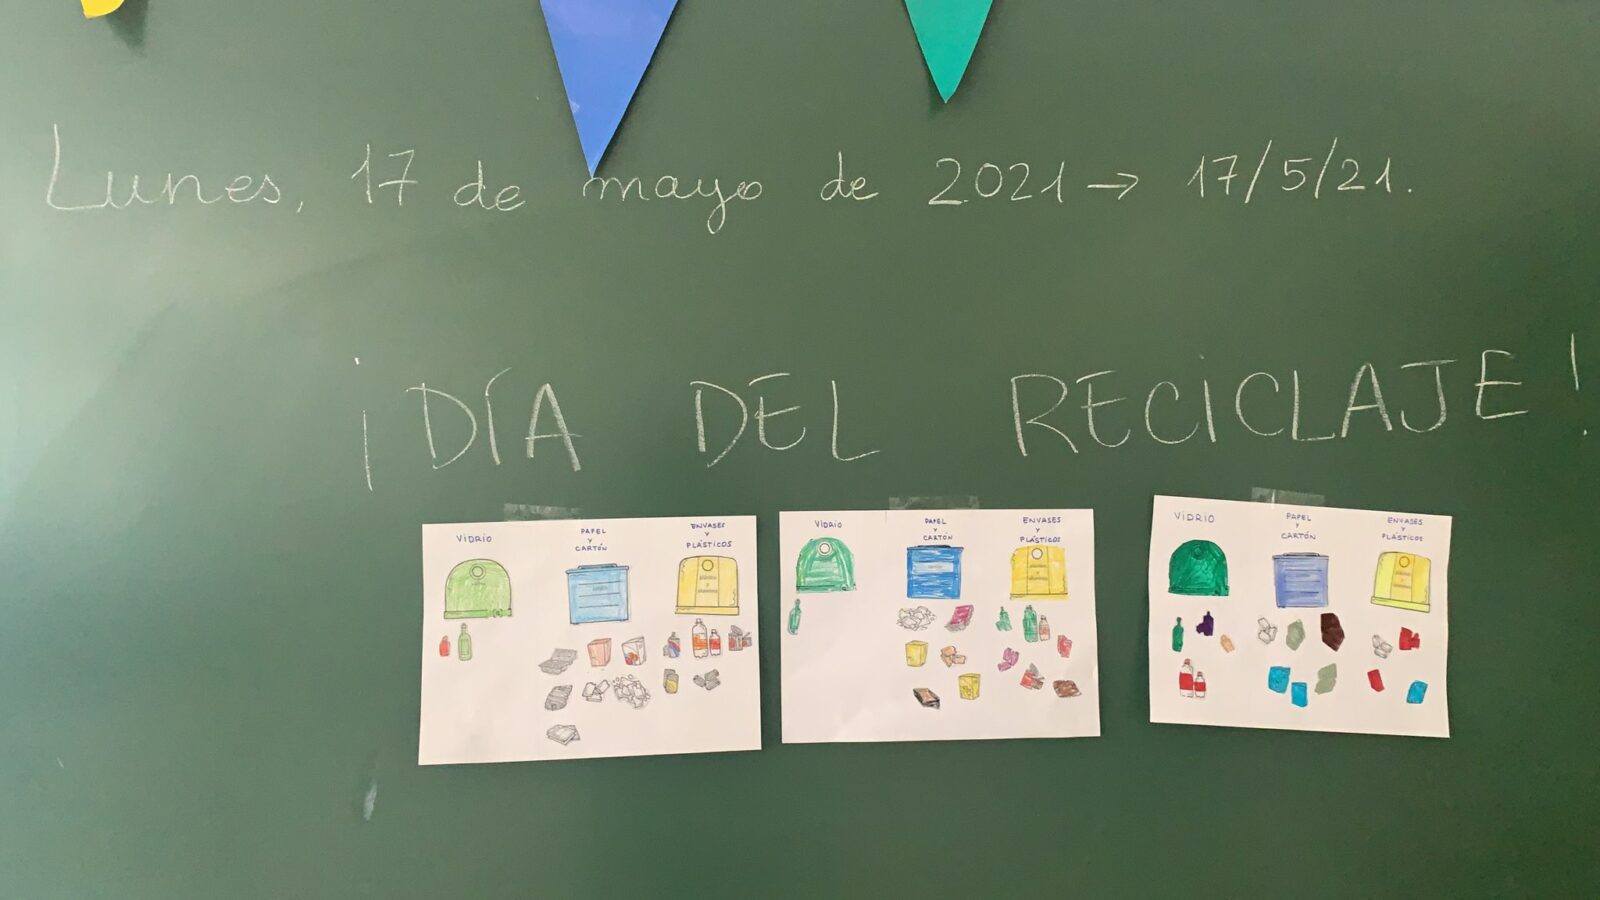 Lunes, 17 de mayo de 2021 → 17/5/21.
¡DÍA DEL RECICLAJE!
VIDRIO
PAPEL
Y
CARTÓN
ENVASES
Y
PLÁSTICOS
VIDRIO
PAPEL
Y
CARTÓN
ENVASES
Y
PLÁSTICOS
VIDRIO
PAPEL
Y
CARTÓN
ENVASES
Y
PLÁSTICOS